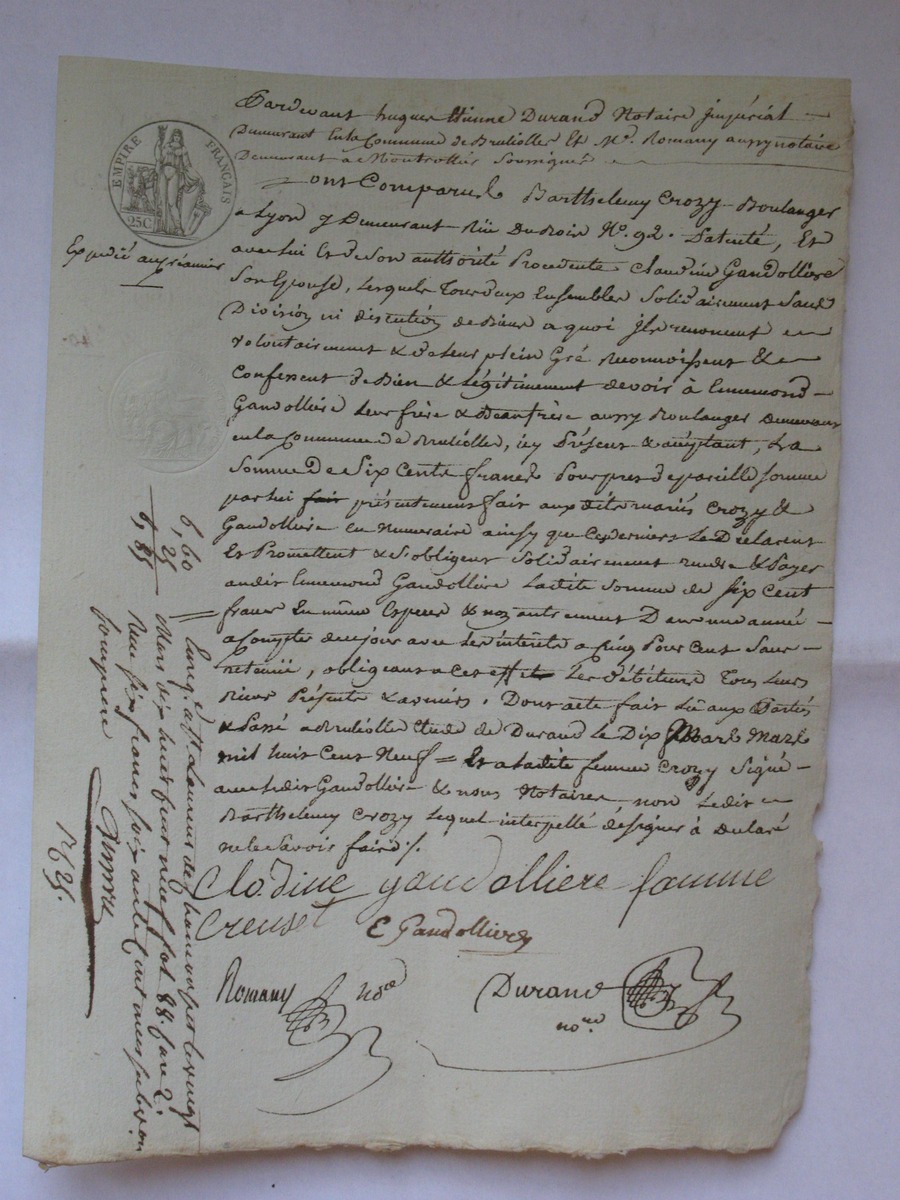 EMPIRE FRANÇAIS
25C
Pardevant hugues Etienne Durand Notaire Impérial
Demeurant En la Commune de Bruliolles Et Me. Romany aussy notaire
Demeurant a Montrottier Soussignés
Ont Comparu Barthelemy Crozy Boulanger
a Lyon y Demeurant Rüe Du Bois No. 92. Patenté, Et
avec lui Et de Son authorité Procedente Claudine Gaudollière
Son Epouse, lesquels Tous deux Ensembles Solidairement Sans
Division ni discution de Biens a quoi ils renoncent
volontairement & de leur plein Gré reconnoissent &
Confessent de Bien & Légitimement devoir à Ennemond
Gaudollière Leur frère & Beaufrère aussy Boulanger demeurant
en la Commune de Brulliolles, icy Présent & acceptant, La
Somme de Six Cents francs Pour pret de pareille Somme
par lui fait présentement fait aux dits mariés Crozy &
Gaudollière en Numeraire ainsy que Ces derniers Le Déclarent
Et Promettent & S'obligent Solidairement rendre & Payer
audit Ennemond Gaudollière Ladite Somme de Six Cent
francs En même Espece & non autrement Dans une année
a Compter de ce jour avec Les intérêts a Cinq Pour Cent Sans
retenüe, obligeants a Ces effets Les débiteurs Tous Leurs
Biens Présents & avenirs. Dont acte fait Lu aux Parties
& Passé a Brulliolle Etude de Durand Le Dix Mars
mil huit Cent Neuf = Et a Ladite femme Crozy Signé
avec Ledit Gaudollière & nous Notaires, non Ledit
Barthelemy Crozy Lequel interpellé de signer à Déclaré
ne le Savoir faire ./.
Clodine gaudolliere famme
Creuset E Gaudollière
Romany nore
Durand
nore
Expedié au créancier
6,60
25
6,85
Enregé a St Laurent de Chamousset le vingt
Mars dix huit cent neuf fol. 88. Case 2.
Reçu Six francs Soixante Centimes
1625.